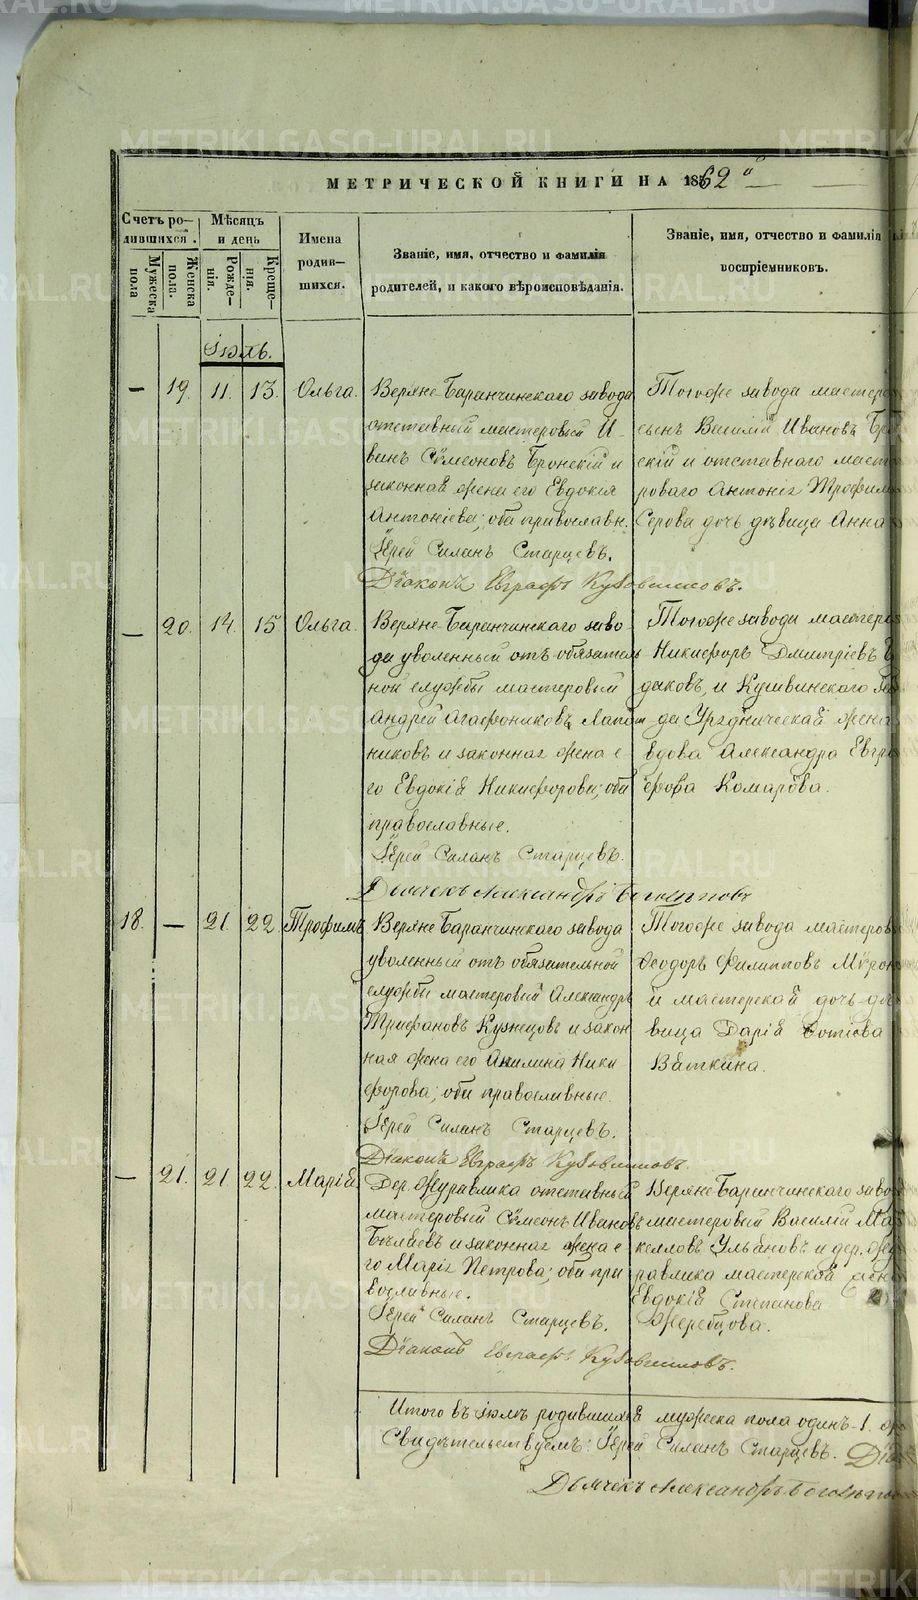 МЕТРИЧЕСКОЙ КНИГИ НА 1862й
Счетъ ро-
дившихся.
Мужеска
пола
Женска
пола.
Мѣсяцъ
и день
Рожде-
нія.
Креще-
нія.
Имена
родив-
шихся.
Званіе, имя, отчество и фамилія
родителей, и какого вѣроисповѣданія.
Званіе, имя, отчество и фамилія
воспріемниковъ.
Іюль.
— 19. 11. 13. Ольга.
Верхне-Баранчинскаго завода
отставный мастеровый И-
ванъ Сѵмеоновъ Бронскій и
законная жена его Евдокія
Антоніева; оба православн.
Іерей Силанъ Старцевъ.
Діаконъ Евграфъ Кубовшиновъ.
Тогоже завода мастеро
сынъ Василій Ивановъ Брон
скій и отставнаго масте
роваго Антонія Трофим
Серова дочь дѣвица Анна
— 20. 14. 15 Ольга.
Верхне-Баранчинскаго заво-
да уволенный отъ обязатель
ной службы мастеровый
Андрей Агафониковъ
никовъ и законная жена е
го Евдокія Никифорова; оба
православные.
Іерей Силанъ Старцевъ.
Дьячекъ Александръ
Тогоже завода мастеро
Никифоръ Дмитріевъ
даковъ, и Кушвинскаго за
да Урядническая жена
вдова Александра Евгра
фова Комарова.
18. — 21. 22. Трофимъ
Верхне-Баранчинскаго завода
уволенный отъ обязательной
службы мастеровый Александръ
Трифановъ Кузнецовъ и закон
ная жена его Акилина Ники
форова; оба православные.
Іерей Силанъ Старцевъ.
Діаконъ Евграфъ Кубовшиновъ.
Тогоже завода мастеров
Ѳеодоръ Филипповъ Мѵрон
и мастерская дочь дѣ
вица Дарія Фотіева
Вяткина.
— 21. 21. 22. Марія
Дер. Журавлика отставный
мастеровый Сѵмеонъ Ивановъ
Бѣляевъ и законная жена е
го Марія Петрова; оба пра
вославные.
Іерей Силанъ Старцевъ.
Діаконъ Евграфъ Кубовшиновъ.
Верхне-Баранчинскаго заво
мастеровый Василій Мар
келловъ Ульяновъ и дер. Жу
равлика мастерская жена
Евдокія Стѣпанова
Жеребцова.
Итого въ Іюлѣ родившихся мужеска пола одинъ-1.
Свидѣтельствуемъ: Іерей Силанъ Старцевъ. Діа
Дьячекъ Александръ
METRIKI.GASO-URAL.RU